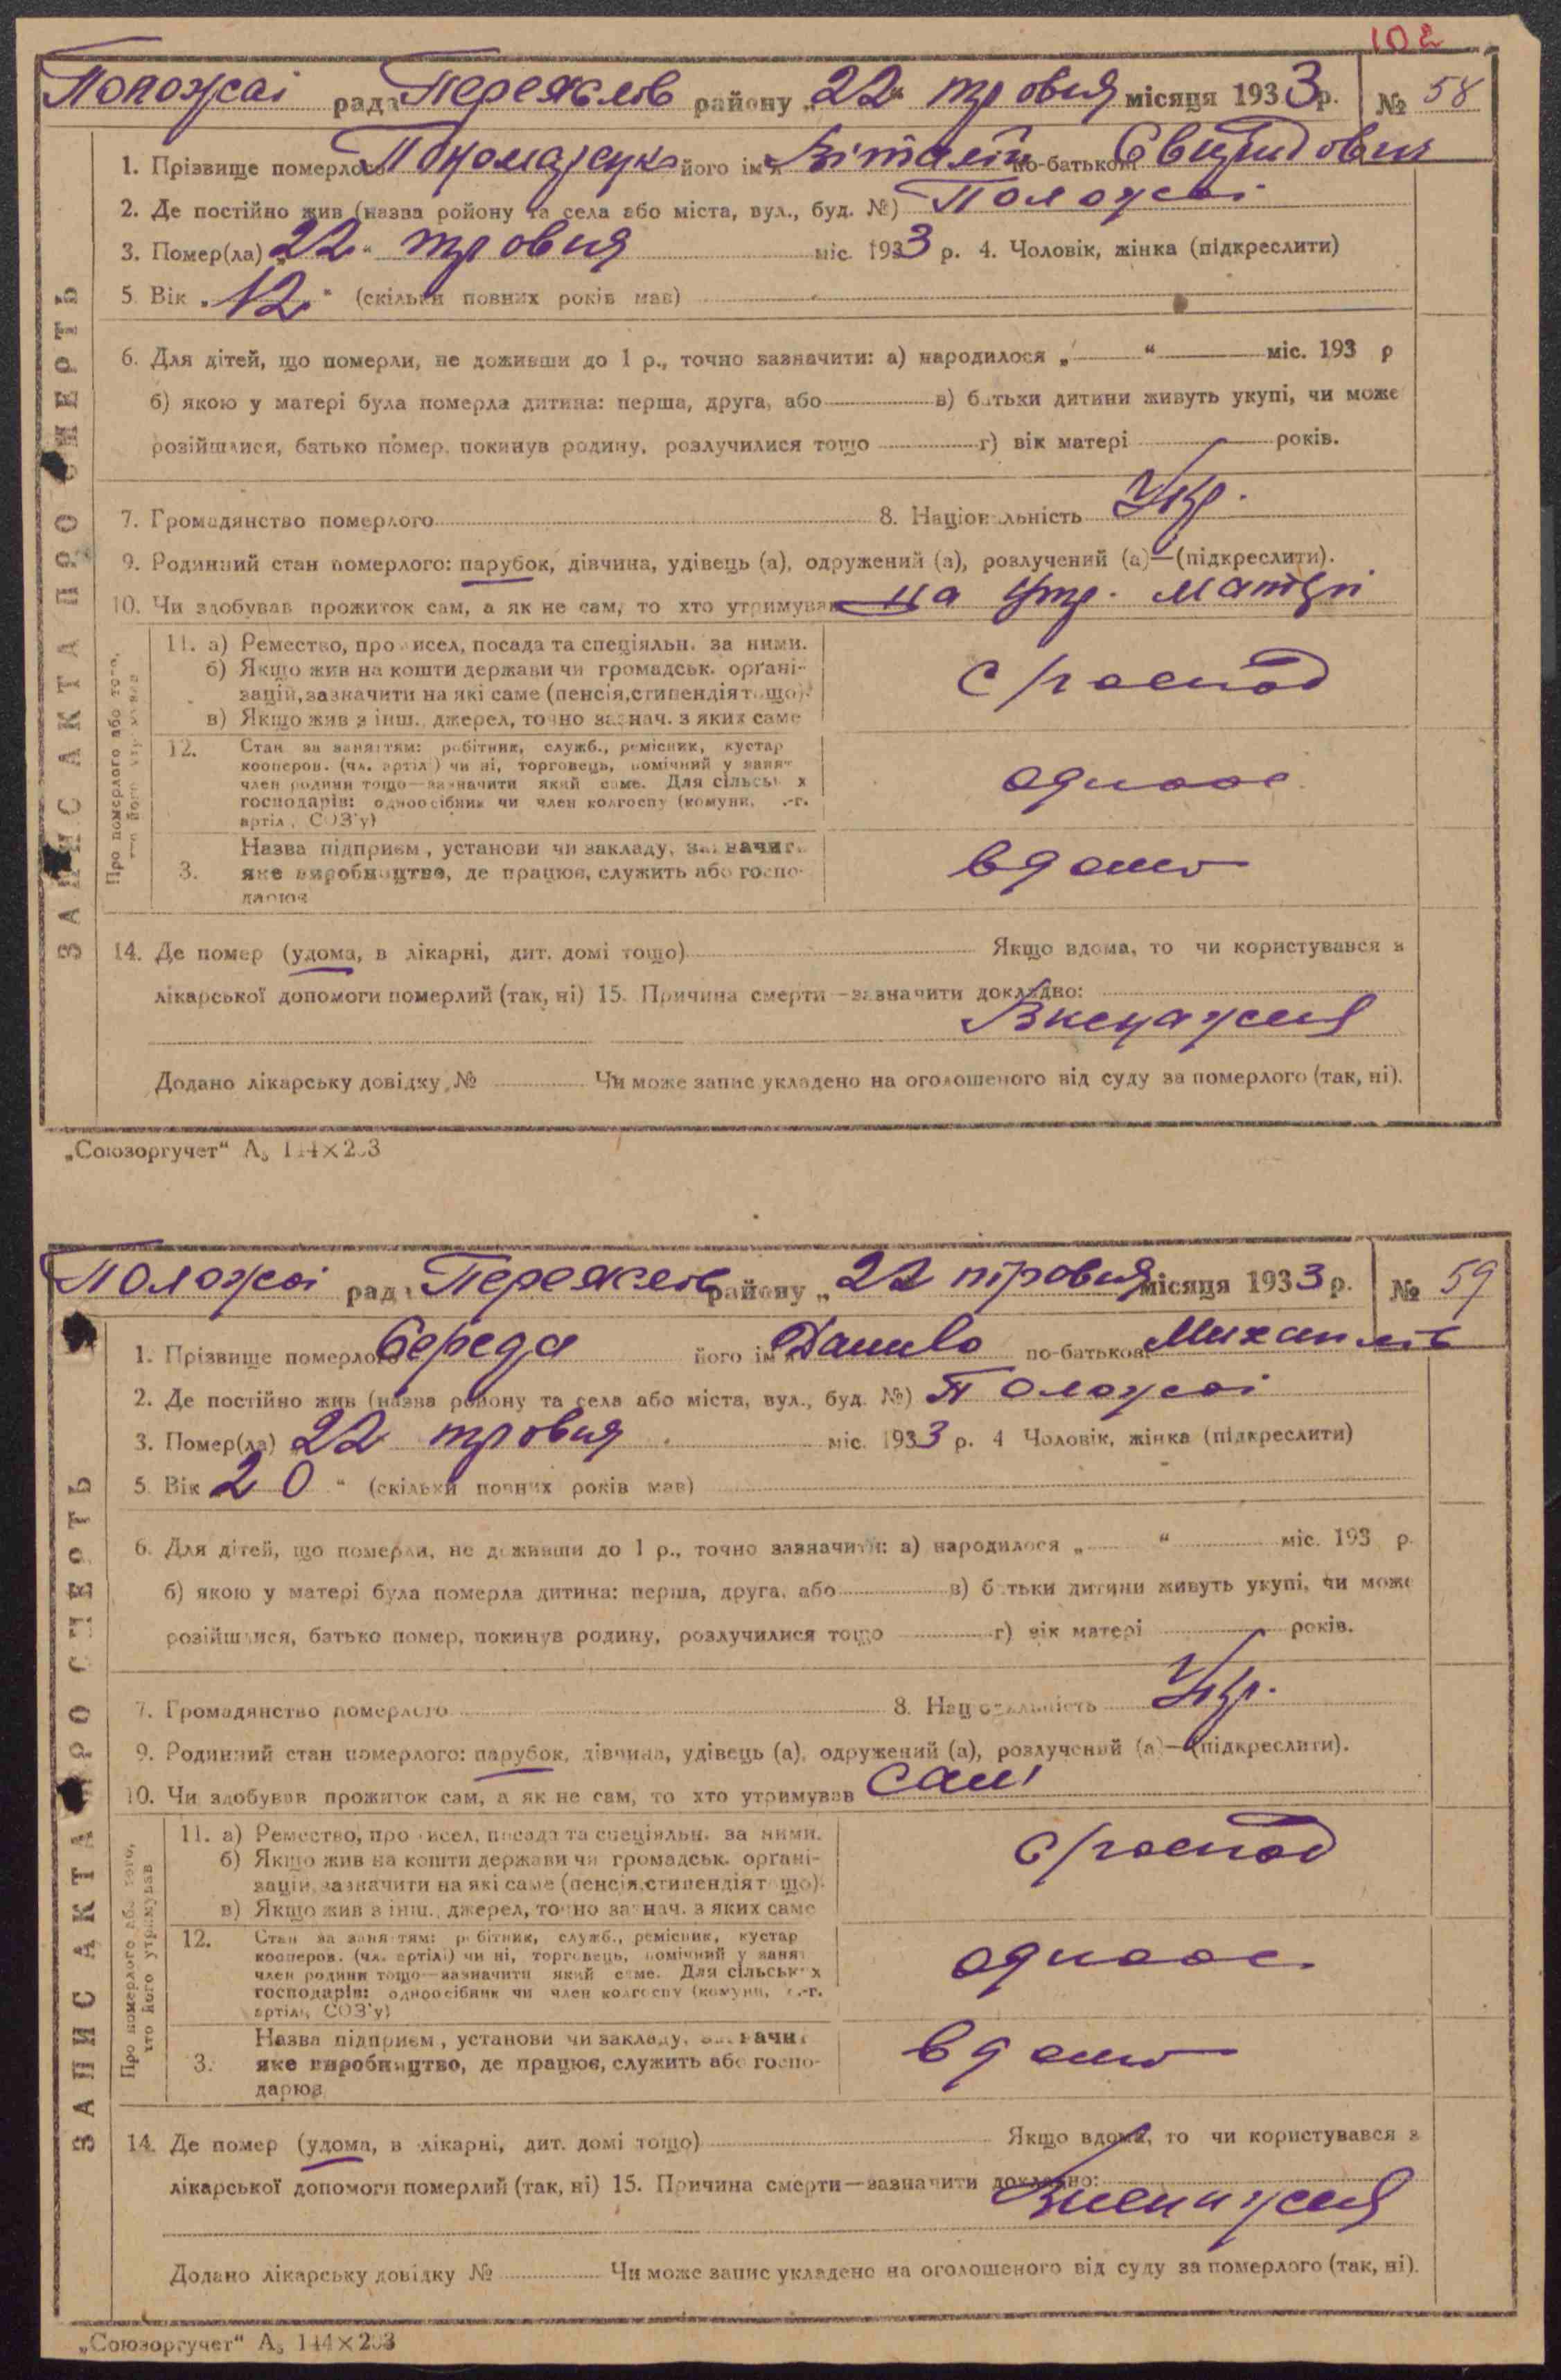 102
Положаі рада Переяслів району „22“ тровня місяця 1933 р. № 58
ЗАПИС АКТА ПРО СМЕРТЬ
1. Прізвище померлого його ім'я Віталій по-батькові
2. Де постійно жив (назва ройону та села або міста, вул., буд. №) Положаі
3. Помер(ла) „22“ тровня міс. 1933 р. 4. Чоловік, жінка (підкреслити)
5. Вік „12“ (скільки повних років мав)
6. Для дітей, що померли, не доживши до 1 р., точно зазначити: а) народилося „ “ міс. 193 р
б) якою у матері була померла дитина: перша, друга, або в) батьки дитини живуть укупі, чи може
розійшлися, батько помер, покинув родину, розлучилися тощо г) вік матері років.
7. Громадянство померлого 8. Національність Укр.
9. Родинний стан померлого: парубок, дівчина, удівець (а), одружений (а), розлучений (а)—(підкреслити).
10. Чи здобував прожиток сам, а як не сам, то хто утримував на утр. матері
Про померлого або того, хто його утримував
11. а) Ремество, промисел, посада та спеціяльн. за ними.
б) Якщо жив на кошти держави чи громадськ. орґані-
зацій, зазначити на які саме (пенсія, стипендія тощо).
в) Якщо жив з інш. джерел, точно зазнач. з яких саме
с/господ
12. Стан за заняттям: робітник, служб., ремісник, кустар
кооперов. (чл. артілі) чи ні, торговець, помічний у занят
член родини тощо—зазначити який саме. Для сільських
господарів: одноосібник чи член колгоспу (комуни, с.-г.
артілі, СОЗ'у)
одноос.
3. Назва підприєм., установи чи закладу, зазначит.
яке виробництво, де працює, служить або госпо-
дарює
вдома
14. Де помер (удома, в лікарні, дит. домі тощо) Якщо вдома, то чи користувався з
лікарської допомоги померлий (так, ні) 15. Причина смерти—зазначити докладно:
Виснаження
Додано лікарську довідку № Чи може запис укладено на оголошеного від суду за померлого (так, ні).
„Союзоргучет“ А₅ 144×203
Положаі рада Переяслів району „22 тровня місяця 1933 р. № 59
ЗАПИС АКТА ПРО СМЕРТЬ
1. Прізвище померлого Середа його ім'я Данило по-батькові Михайлів
2. Де постійно жив (назва ройону та села або міста, вул., буд. №) Положаі
3. Помер(ла) „22 тровня міс. 1933 р. 4 Чоловік, жінка (підкреслити)
5. Вік 20“ (скільки повних років мав)
6. Для дітей, що померли, не доживши до 1 р., точно зазначити: а) народилося „ “ міс. 193 р.
б) якою у матері була померла дитина: перша, друга, або в) батьки дитини живуть укупі, чи може
розійшлися, батько помер, покинув родину, розлучилися тощо г) вік матері років.
7. Громадянство померлого 8. Національність Укр.
9. Родинний стан померлого: парубок, дівчина, удівець (а), одружений (а), розлучений (а)—(підкреслити).
10. Чи здобував прожиток сам, а як не сам, то хто утримував сам
Про померлого або того, хто його утримував
11. а) Ремество, промисел, посада та спеціяльн. за ними.
б) Якщо жив на кошти держави чи громадськ. орґані-
зацій, зазначити на які саме (пенсія, стипендія тощо).
в) Якщо жив з інш. джерел, точно зазнач. з яких саме
с/господ
12. Стан за заняттям: робітник, служб., ремісник, кустар
кооперов. (чл. артілі) чи ні, торговець, помічний у занят
член родини тощо—зазначити який саме. Для сільських
господарів: одноосібник чи член колгоспу (комуни, с.-г.
артілі, СОЗ'у)
одноос.
3. Назва підприєм., установи чи закладу, зазначит
яке виробництво, де працює, служить або госпо-
дарює
вдома
14. Де помер (удома, в лікарні, дит. домі тощо) Якщо вдома, то чи користувався з
лікарської допомоги померлий (так, ні) 15. Причина смерти—зазначити докладно:
Виснаження
Додано лікарську довідку № Чи може запис укладено на оголошеного від суду за померлого (так, ні).
„Союзоргучет“ А₅ 144×203